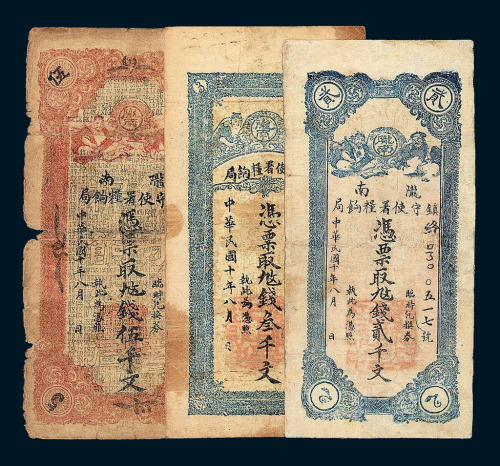 伍
隴南
鎮守使署糧餉局
憑票取尨錢伍千文
臨時兌換券
執此為憑照
中華民國十年八月 日
使署糧餉局
憑票取尨錢叁千文
執此為憑照
中華民國十年八月
貳
貳
隴南
鎮守使署糧餉局
憑票取尨錢貳千文
臨時兌換券
執此為憑照
中華民國十年八月 日
五一七號